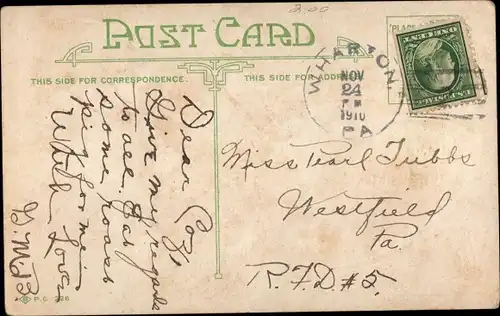 2.00
POST CARD
THIS SIDE FOR CORRESPONDENCE.
THIS SIDE FOR ADDRESS
PLACE
WHARTON,
NOV
24
1910
PA
Dear Coz,
Give my regards
to all. Eat
some roast
pig for me.
With Love
G.M.B.
Miss Pearl Tubbs
Westfield
Pa.
R.F.D #5.
P.C. 226